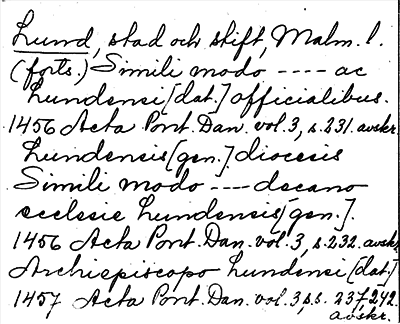 Lund, stad och stift, Malm. l.
(forts.) Simili modo ---- ac
Lundensi [dat.] officialibus.
1456 Acta Pont. Dan. vol. 3, s. 231. avskr.
Lundensis [gen.] diocesis
Simili modo ---- decano
ecclesie Lundensis [gen.].
1456 Acta Pont. Dan. vol. 3, s. 232. avskr.
Archiepiscopo Lundensi [dat.]
1457 Acta Pont. Dan. vol. 3, s.s. 237, 242.
avskr.